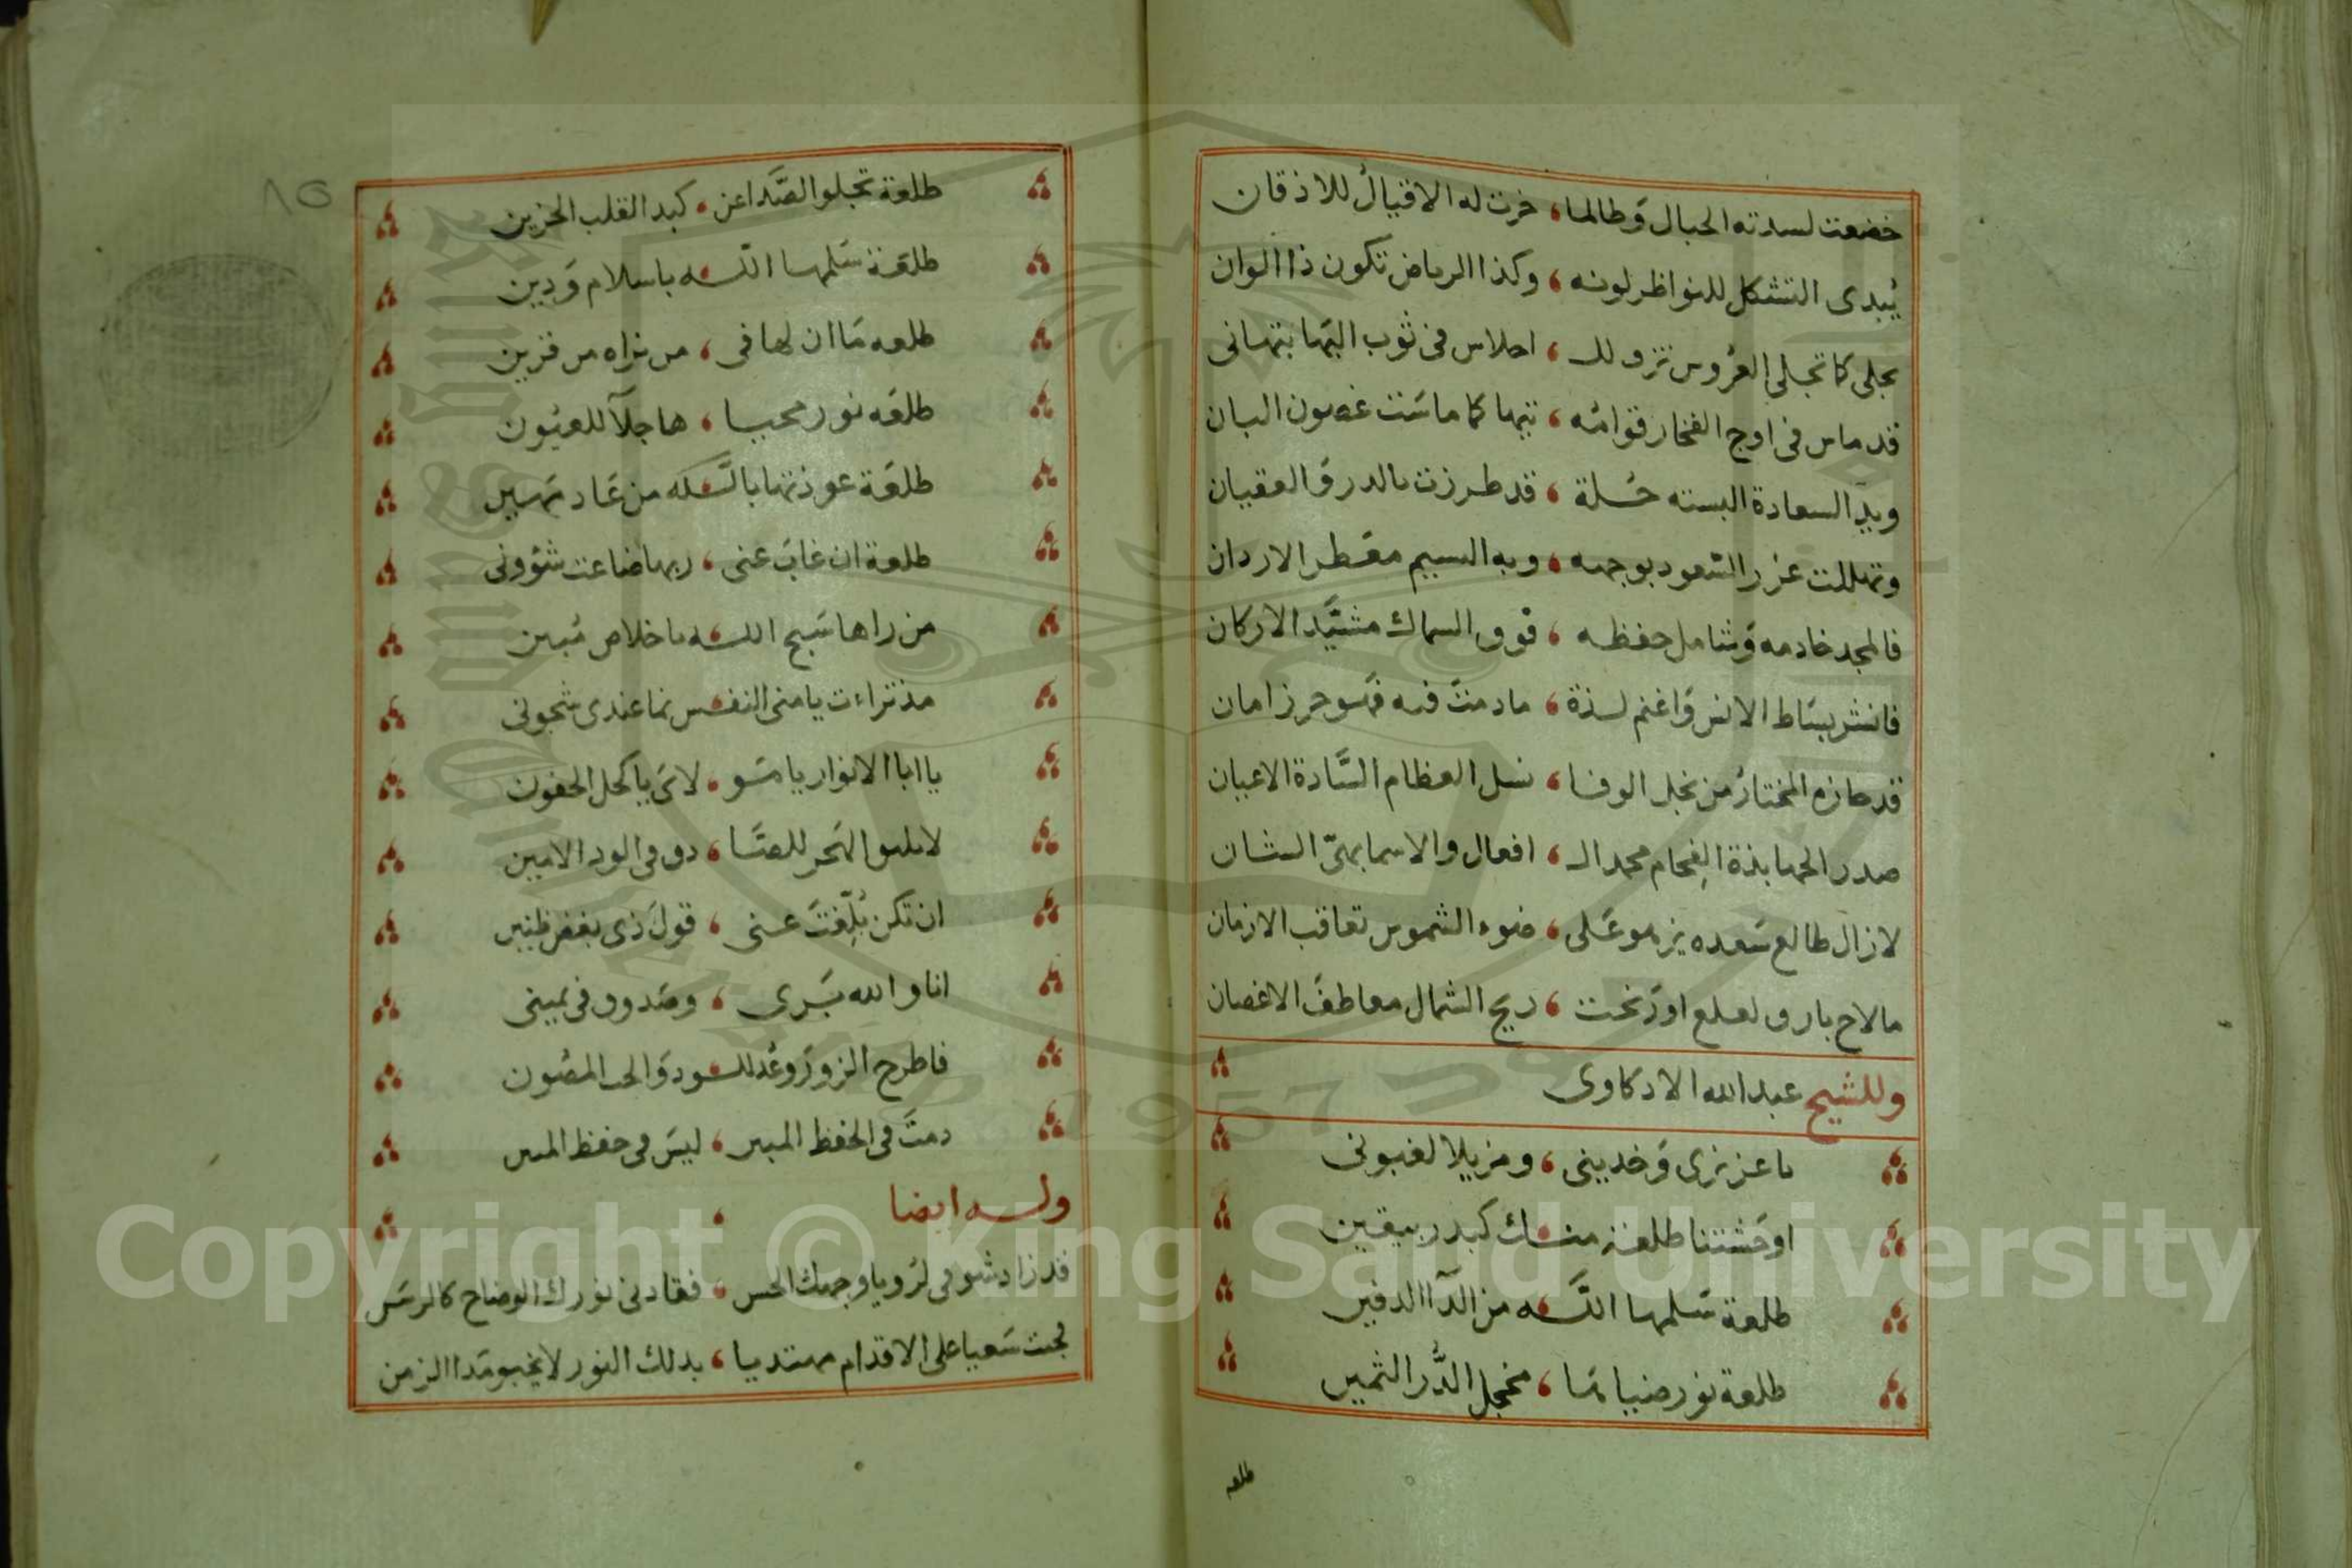 خضعت لسدته الجبال وطالما ، خرت له الاقيال للاذقان
يبدى التشكل للنواظر لونه ، وكذا الرياض تكون ذا الوان
يجلى كما تجلى العروس تزف لك ، اجلاس فى ثوب البها بتهانى
قد ماس فى اوج الفخار قوامه ، تيها كما ماست غصون البان
ويد السعادة البسته حلة ، قد طرزت بالدر والعقيان
وتهللت غرر السعود بوجهه ، وبه النسيم معطر الاردان
فالمجد خادمه وشامل حفظه ، فوق السماك مشيد الاركان
فانشر بساط الانس واغنم لذة ، مادمت فيه فهو حرز امان
قد حازه المختار من نجل الوفا ، نسل العظام السادة الاعيان
صدر الجهابذة الفخام محمد الـ ، افعال والاسما بهى الشان
لازال طالع سعده يزهو على ، ضوء الشموس تعاقب الازمان
مالاح بارق لعلع او رنحت ، ريح الشمال معاطف الاغصان
وللشيخ عبد الله الادكاوى
ياعزيزى وخدينى ، ومزيلا لغبونى
اوحشتنا طلعة منك كبدر بيقين
طلعة سلمها الله من الدآ الدفين
طلعة نور ضيا ئها ، مخجل الدر الثمين
طلعه
طلعة تجلو الصدا عن ، كبد القلب الحزين
طلعة سلمها الله باسلام ودين
طلعه ما ان لها فى ، من نراه من قرين
طلعه نور محيا ، ها جلآ للعيون
طلعة عوذتها بالله من عاد مهين
طلعة ان غاب عنى ، ريها ضاعت شؤونى
من راها سبح الله باخلاص مبين
مذ تراءت يا منى النفس نما عندى شجونى
يا ابا الانوار يا مو ، لاى يا كحل الجفون
لا يليق الهجر للصا ، دق فى الود الامين
ان تكن بلغت عنى ، قول ذى بغض ظنين
انا والله برى ، وصدوق فى يمينى
فاطرح الزور وعد للود والحب المصون
دمت فى الحفظ المبين ، ليس فى حفظ المين
وله ايضا
قد زاد شوقى لرويا وجهك الحسن ، فقادنى نورك الوضاح كالرسن
فجئت سعيا على الاقدام مهتديا ، بذلك النور لا يخبو مدا الزمن
Copyright © King Saud University
1957